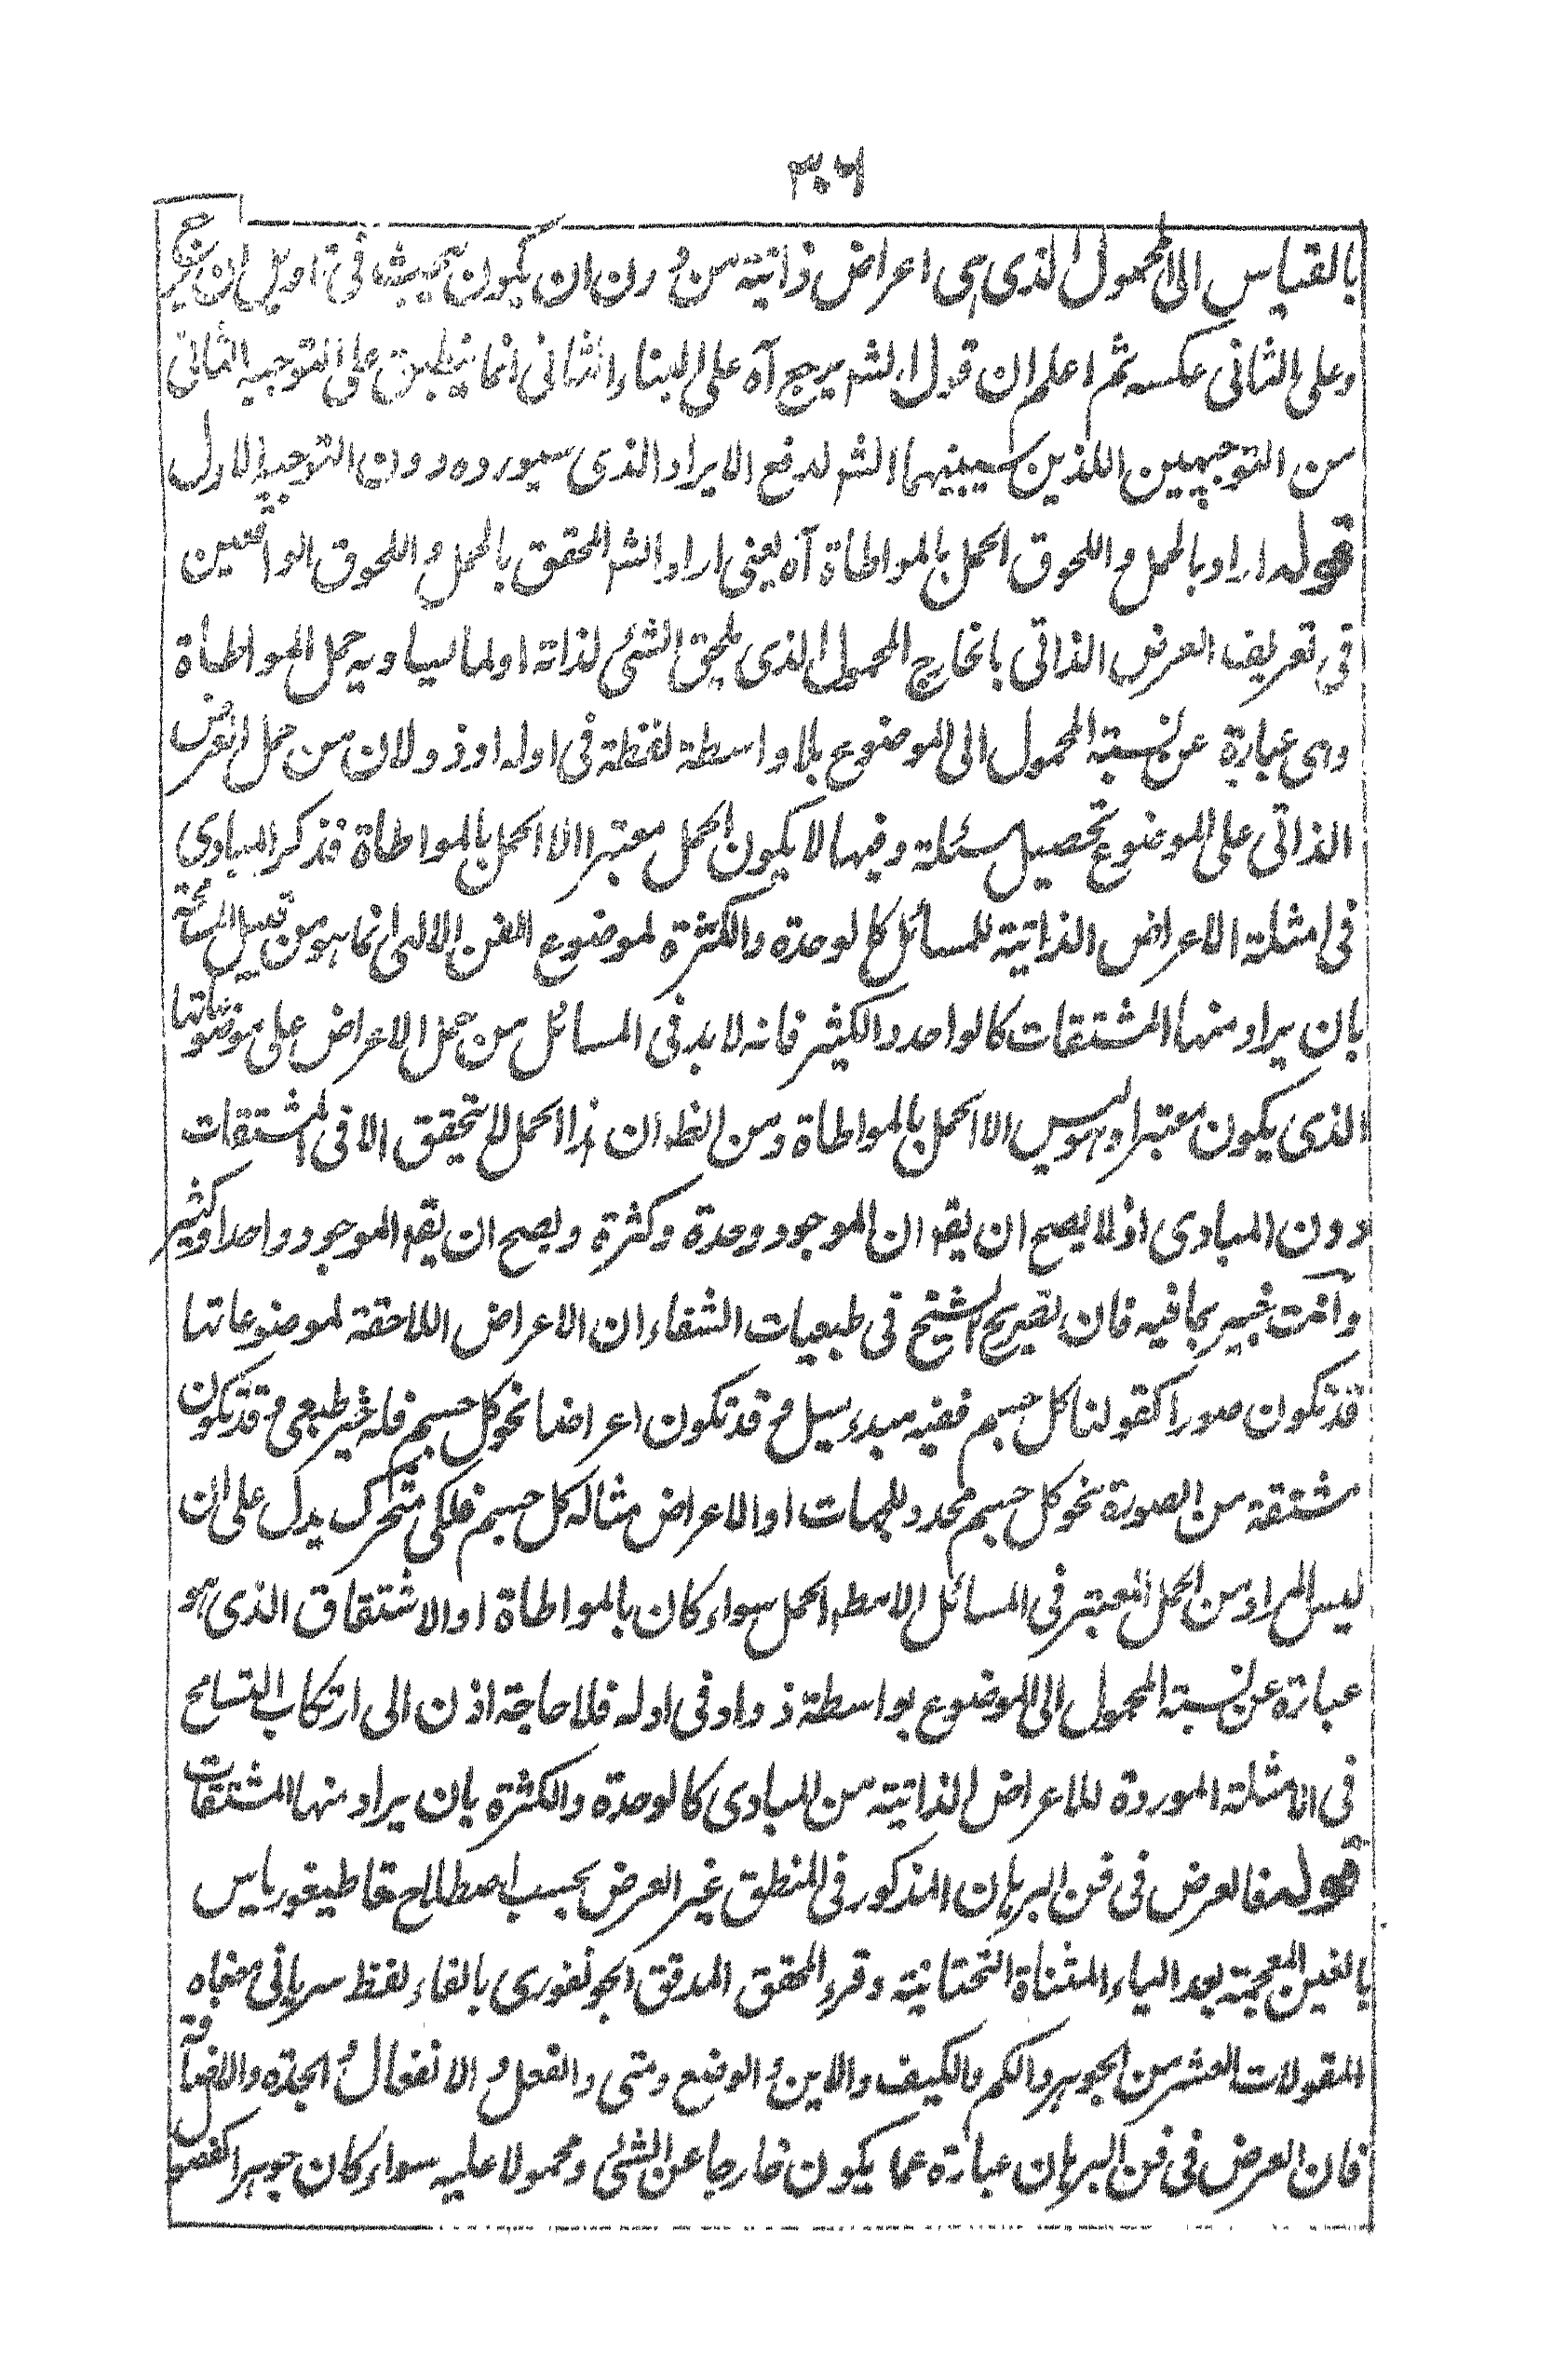 ٣٠٦
بالقياس الى المحمول الذى هى اعراض ذاتية من دون ان يكون بحيثا فى تاويل ان
وعلى الثانى عكسه ثم اعلم ان قول الشر يرجع آه على البناء الثانى انما ينطبق على التوجيه الثانى
من التوجيهين اللذين سيبينهما الشر لدفع الايراد الذى سيورده دون التوجيه الاول
قوله اراد بالحمل واللحوق الحمل بالمواطاة آه يعنى اراد الشر المحقق بالحمل واللحوق الواقعين
فى تعريف العرض الذاتى بالخارج المحمول الذى يلحق الشئ لذاته او لما يساويه حمل المواطاة
وهى عبارة عن نسبة المحمول الى الموضوع بلا واسطة لفظة فى او له او ذو لان من حمل العرض
الذاتى على الموضوع تحصيل مسئلة وفيها لا يكون الحمل معتبرا الا الحمل بالمواطاة فذكر المبادى
فى امثلة الاعراض الذاتية للمسائل كالوحدة والكثرة لموضوع الفن الالهى انما هو من قبيل المسامحة
بان يراد منها المشتقات كالواحد والكثير فانه لا بد فى المسائل من حمل الاعراض على موضوعاتها
الذى يكون معتبرا وهو ليس الا الحمل بالمواطاة ومن الظ ان هذا الحمل لا يتحقق الا فى المشتقات
دون المبادى اذ لا يصح ان يقه ان الموجود وحدة وكثرة ويصح ان يقه الموجود واحد او كثير
وانت خبير بما فيه فان تصريح الشيخ فى طبعيات الشفاء ان الاعراض اللاحقة لموضوعاتها
قد تكون صورا كقولنا كل جسم ففيه مبدء ميل وقد تكون اعراضا نحو كل جسم فله حيز طبعى وقد تكون
مشتقة من الصورة نحو كل جسم محدد للجهات او الاعراض مثاله كل جسم فلكى متحرك يدل على ان
ليس المراد من الحمل المعتبر فى المسائل الا مطه الحمل سواء كان بالمواطاة او الاشتقاق الذى هو
عبارة عن نسبة المحمول الى الموضوع بواسطة ذو او فى او له فلا حاجة اذن الى ارتكاب التسامح
فى الامثلة الموردة للاعراض الذاتية من المبادى كالوحدة والكثرة بان يراد منها المشتقات
قوله فالعرض فى فن البرهان المذكور فى المنطق غير العرض بحسب اصطلاح قاطيغورياس
بالغين المعجمة بعد الياء المثناة التحتانية وقرء المحقق المدقق الجونفورى بالفاء لفظ سريانى معناه
المقولات العشر من الجوهر والكم والكيف والاين والوضع ومتى والفعل والانفعال والجدة والاضافة
فان العرض فى فن البرهان عبارة عما يكون خارجا عن الشئ ومحمولا عليه سواء كان جوهرا كفصل